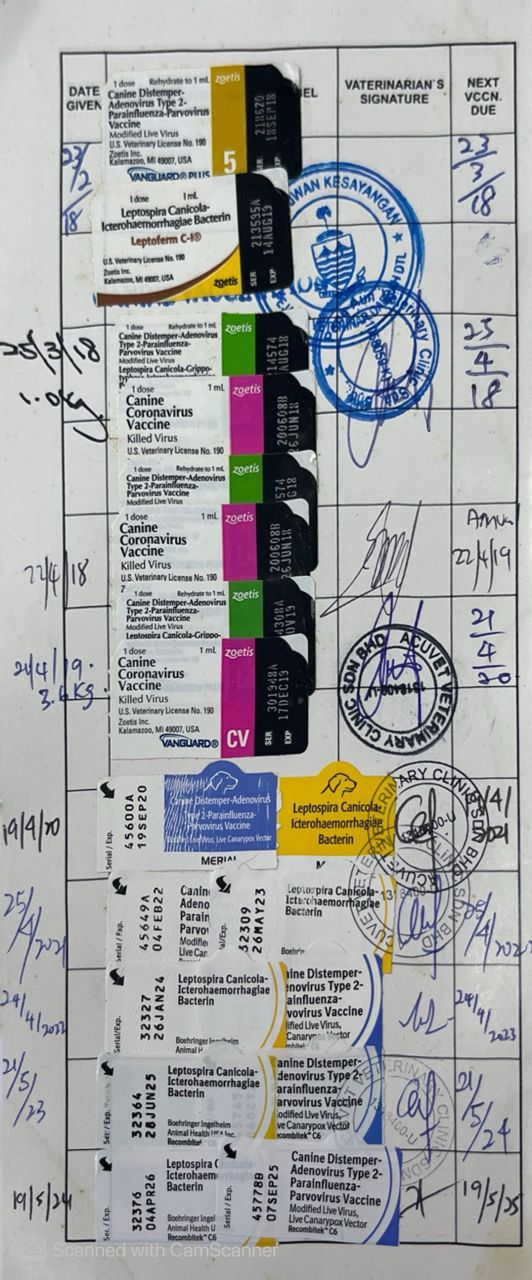 DATE GIVEN
VATERINARIAN'S SIGNATURE
NEXT VCCN. DUE
23/2/18
1 dose Rehydrate to 1 mL zoetis
Canine Distemper-
Adenovirus Type 2-
Parainfluenza-Parvovirus
Vaccine
Modified Live Virus
U.S. Veterinary License No. 190
Zoetis Inc.
Kalamazoo, MI 49007, USA
VANGUARD® PLUS 5
SER 218620
EXP 18SEP18
23/3/18
1 dose 1 mL
Leptospira Canicola-
Icterohaemorrhagiae Bacterin
Leptoferm C-I®
U.S. Veterinary License No. 190
Zoetis Inc.
Kalamazoo, MI 49007, USA
zoetis
SER 213595A
EXP 14AUG19
WAN KESAYANGAN
25/3/18
1.0kg
1 dose Rehydrate to 1 mL zoetis
Canine Distemper-Adenovirus
Type 2-Parainfluenza-
Parvovirus Vaccine
Modified Live Virus
Leptospira Canicola-Grippo-
14574
AUG18
25/4/18
1 dose 1 mL zoetis
Canine
Coronavirus
Vaccine
Killed Virus
U.S. Veterinary License No. 190
200608B
26JUN18
22/4/18
1 dose Rehydrate to 1 mL zoetis
Canine Distemper-Adenovirus
Type 2-Parainfluenza-
Parvovirus Vaccine
Modified Live Virus
574
G18
1 dose 1 mL zoetis
Canine
Coronavirus
Vaccine
Killed Virus
U.S. Veterinary License No. 190
200608B
26JUN18
22/4/19
1 dose Rehydrate to 1 mL zoetis
Canine Distemper-Adenovirus
Type 2-Parainfluenza-
Parvovirus Vaccine
Modified Live Virus
Leptospira Canicola-Grippo-
4308A
21/4/19.
3.6kg
1 dose 1 mL zoetis
Canine
Coronavirus
Vaccine
Killed Virus
U.S. Veterinary License No. 190
Zoetis Inc.
Kalamazoo, MI 49007, USA
VANGUARD® CV
SER 301948A
EXP 17DEC19
ACUVET VETERINARY CLINIC SDN BHD
1318400-U
21/4/20
19/4/20
Serial / Exp.
45600A
19SEP20
Canine Distemper-Adenovirus
Type 2-Parainfluenza-
Parvovirus Vaccine
Modified Live Virus, Live Canarypox Vector
MERIAL
Leptospira Canicola-
Icterohaemorrhagiae
Bacterin
25/4/2021
Serial / Exp.
45649A
04FEB22
32309
26MAY23
Leptospira Canicola-
Icterohaemorrhagiae
Bacterin
24/4/2022
Serial/Exp.
32327
26JAN24
Leptospira Canicola-
Icterohaemorrhagiae
Bacterin
Boehringer Ingelheim
Animal H
anine Distemper-
denovirus Type 2-
arainfluenza-
arvovirus Vaccine
24/4/2023
21/5/23
Ser. / Exp.
32364
28JUN25
Leptospira Canicola-
Icterohaemorrhagiae
Bacterin
Boehringer Ingelheim
Animal Health USA Inc.
Recombitek® C6
anine Distemper-
denovirus Type 2-
arainfluenza-
arvovirus Vaccine
21/5/24
19/5/24
Ser. / Exp.
32376
04APR26
Leptospira C
Icterohaem
Bacterin
Boehringer Ingel
Animal Health U
Recombitek® C6
Serial / Exp.
45778B
07SEP25
Canine Distemper-
Adenovirus Type 2-
Parainfluenza-
Parvovirus Vaccine
Modified Live Virus,
Live Canarypox Vector
Recombitek® C6
19/5/25
CS Scanned with CamScanner